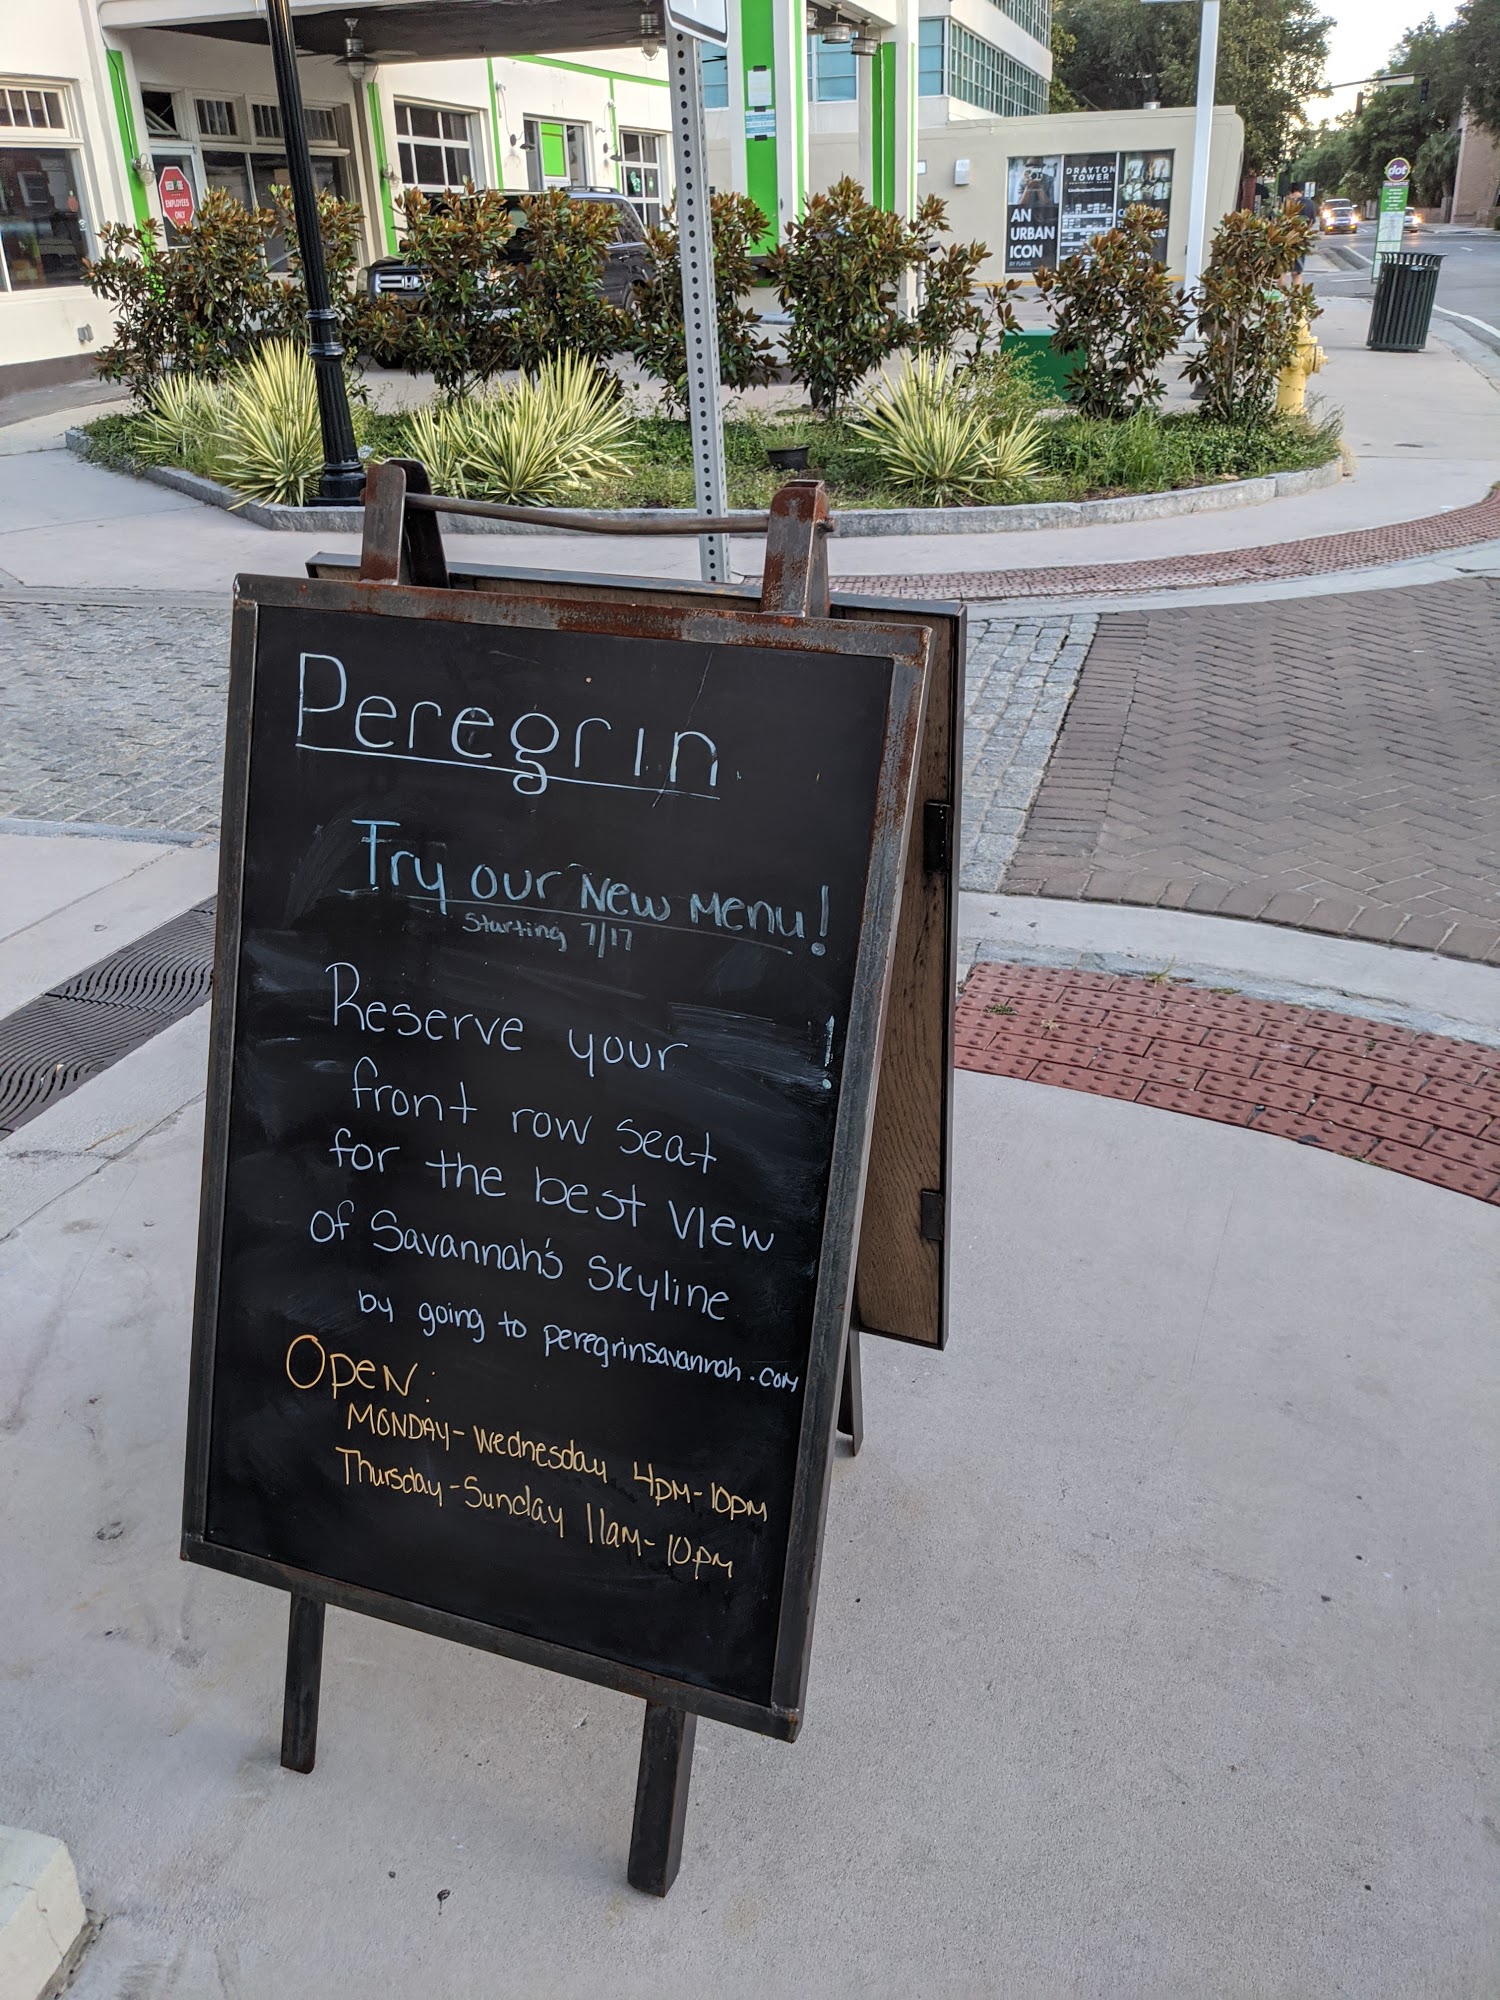 WHEN RED
EMPLOYEES
ONLY
AN
URBAN
ICON
DRAYTON
TOWER
dot
Peregrin
Try our New Menu!
Starting 7/17
Reserve your !
front row seat
for the best view
of Savannah's skyline
by going to peregrinsavannah.com
Open:
MONDAY - Wednesday 4pm - 10pm
Thursday - Sunday 11am - 10pm